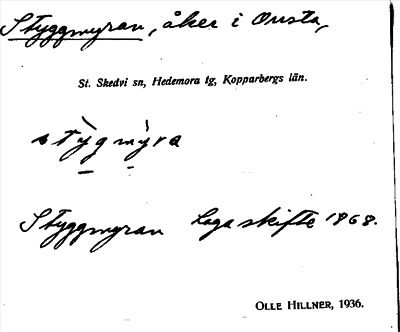 Styggmyran, åker i Onsta,
St. Skedvi sn, Hedemora tg, Kopparbergs län.
stỳgmỳra
Styggmyran Laga skifte 1868.
OLLE HILLNER, 1936.